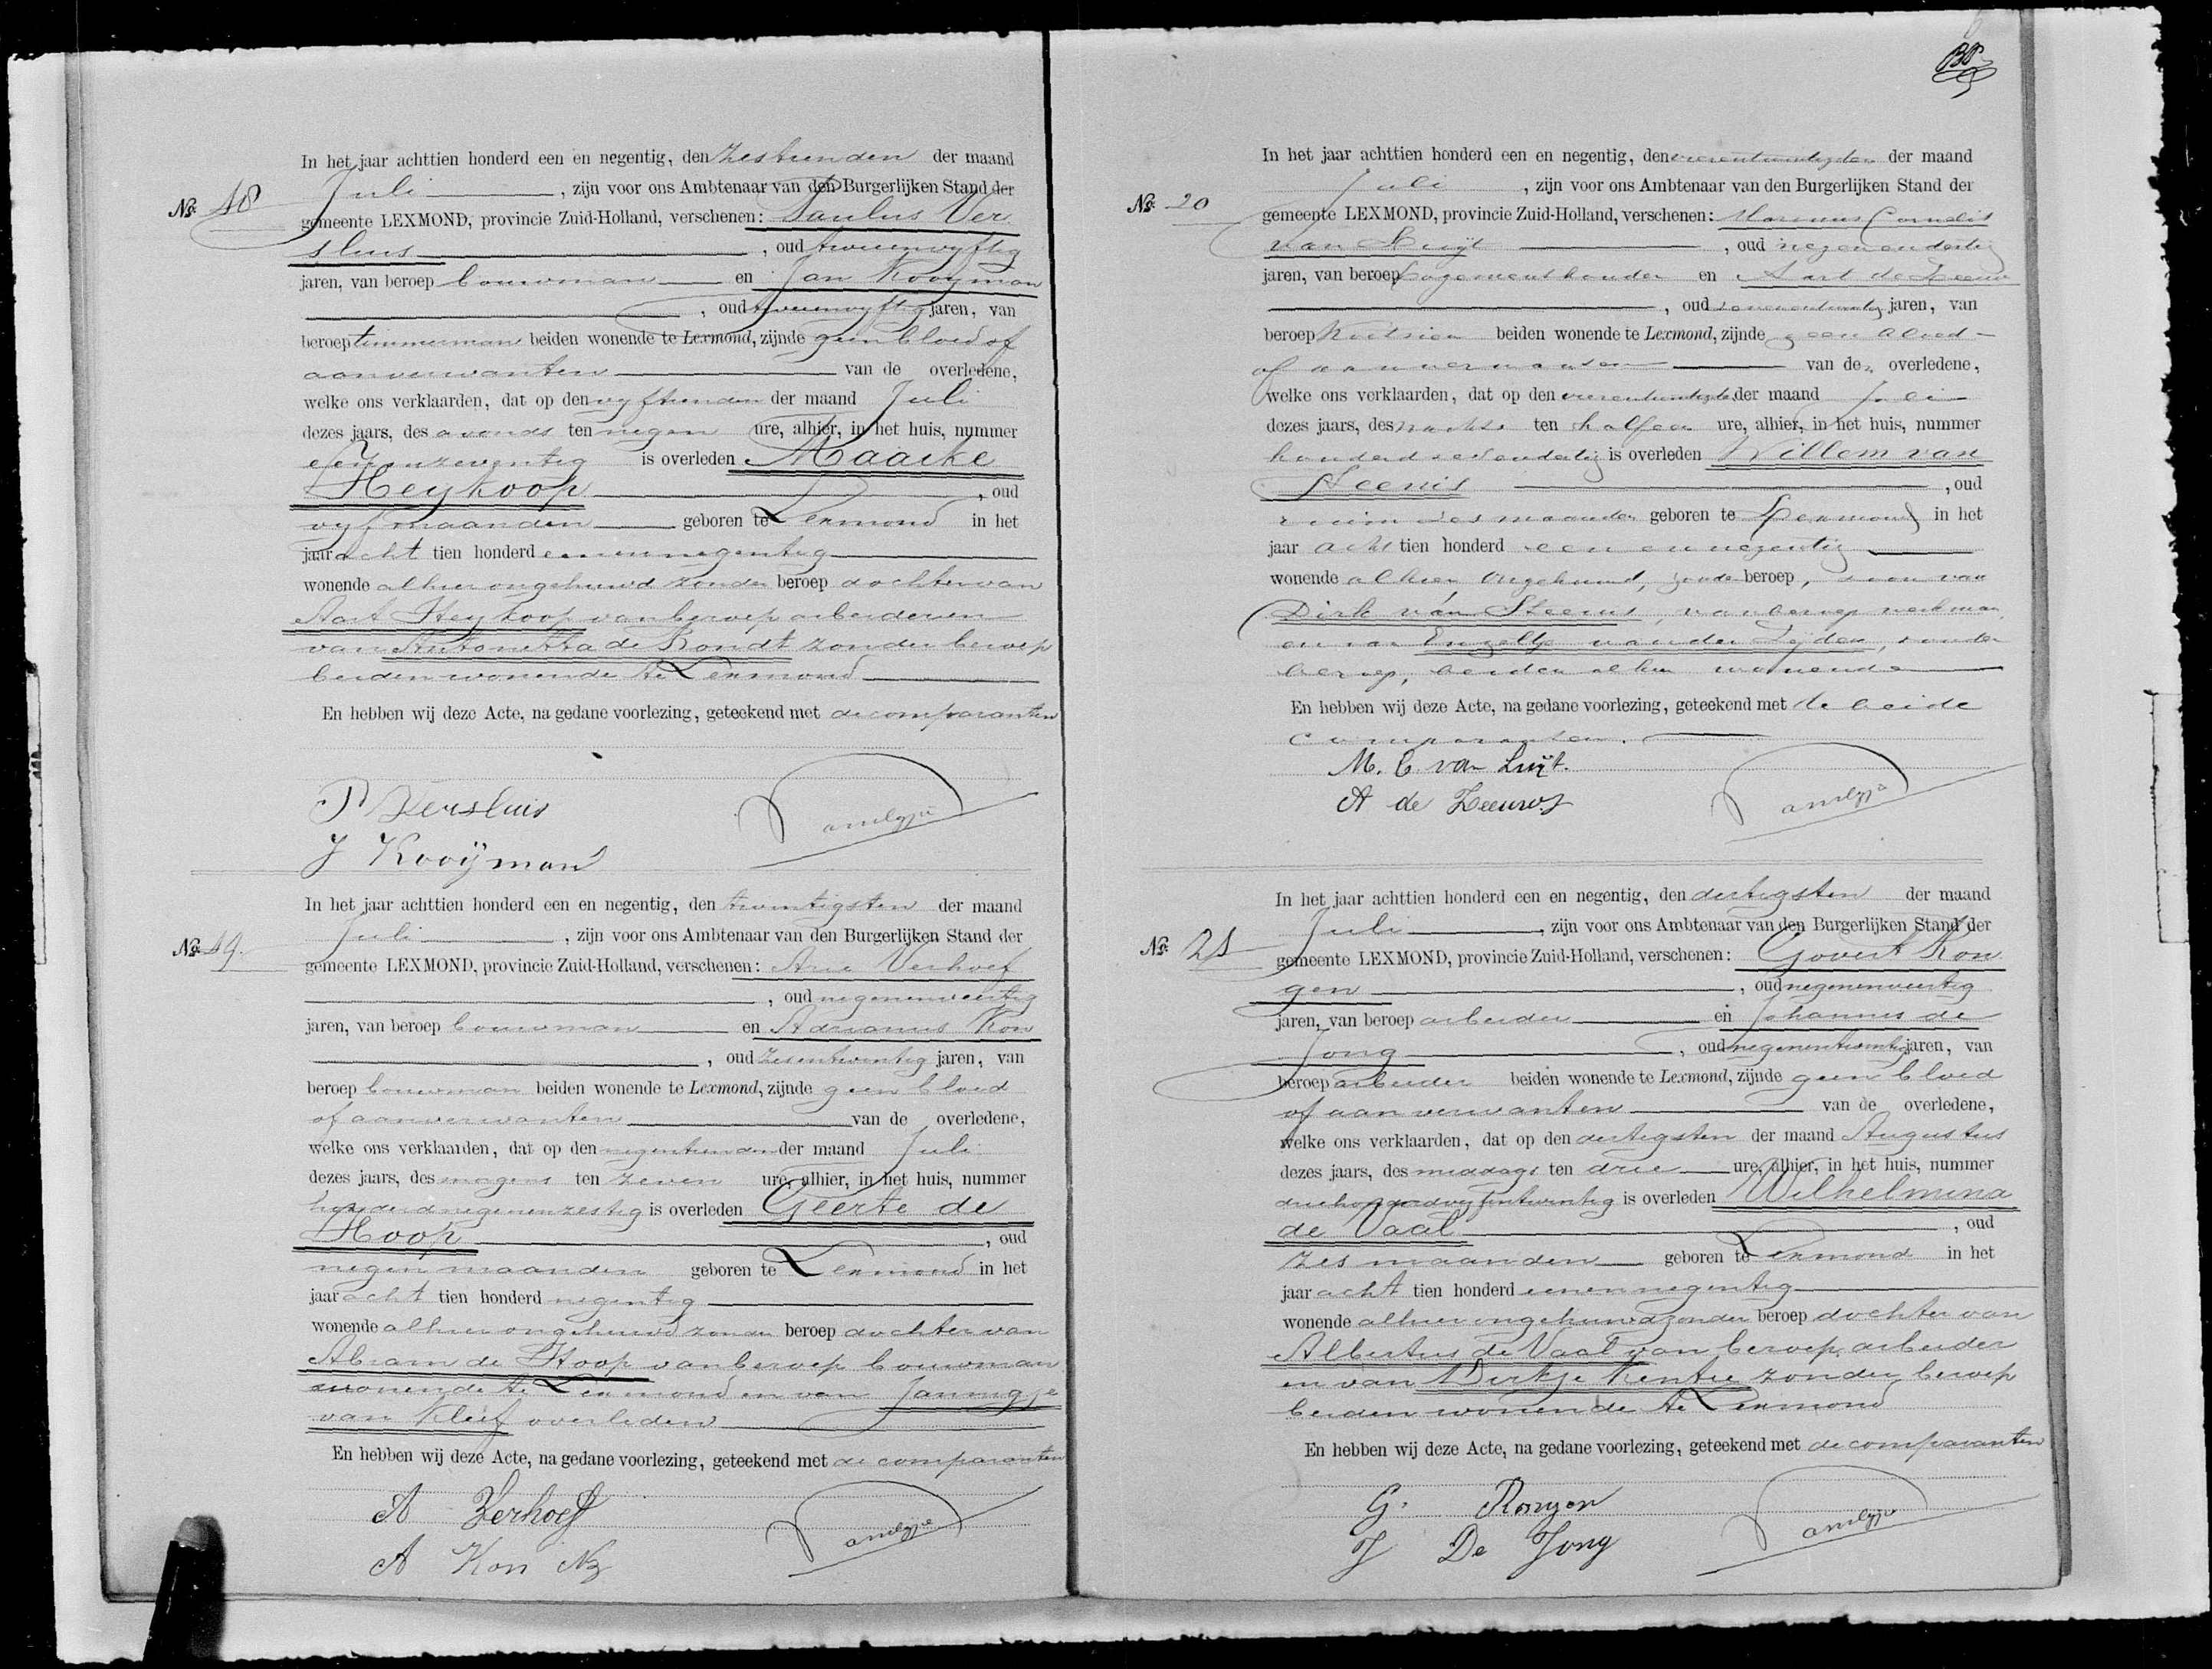 In het jaar achttien honderd een en negentig, den zestienden der maand
No. 18 Juli, zijn voor ons Ambtenaar van den Burgerlijken Stand der
gemeente LEXMOND, provincie Zuid-Holland, verschenen: Paulus Ver
sluis, oud tweeenvyftig
jaren, van beroep bouwman en Jan Kooyman
, oud tweeenvyftig jaren, van
beroep timmerman beiden wonende te Lexmond, zijnde geen bloed of
aanverwanten van de overledene,
welke ons verklaarden, dat op den vyftienden der maand Juli
dezes jaars, des avonds ten negen ure, alhier, in het huis, nummer
is overleden Maaike
Heykoop, oud
vyf maanden geboren te Lexmond in het
jaar acht tien honderd eenennegentig
wonende alhier ongehuwd zonder beroep dochter van
Aart Heykoop van beroep arbeider en
van Antonetta de Rondt zonder beroep
beiden wonende te Lexmond
En hebben wij deze Acte, na gedane voorlezing, geteekend met de comparanten
P Versluis
J Kooÿman
In het jaar achttien honderd een en negentig, den twintigsten der maand
No. 19. Juli, zijn voor ons Ambtenaar van den Burgerlijken Stand der
gemeente LEXMOND, provincie Zuid-Holland, verschenen: Arie Verhoef
, oud negenenveertig
jaren, van beroep bouwman en Adrianus Kon
, oud zesentwintig jaren, van
beroep bouwman beiden wonende te Lexmond, zijnde geen bloed
of aanverwanten van de overledene,
welke ons verklaarden, dat op den negentienden der maand Juli
dezes jaars, des morgens ten zeven ure, alhier, in het huis, nummer
honderdnegenenzestig is overleden Geerte de
Hoop, oud
negen maanden geboren te Lexmond in het
jaar acht tien honderd negentig
wonende alhier ongehuwd zonder beroep dochter van
Abram de Hoop van beroep bouwman
wonende te Lexmond en van Jannigje
van Kleef overleden
En hebben wij deze Acte, na gedane voorlezing, geteekend met de comparanten
A Verhoef
A Kon Nz
In het jaar achttien honderd een en negentig, den vierentwintigsten der maand
No. 20 Juli, zijn voor ons Ambtenaar van den Burgerlijken Stand der
gemeente LEXMOND, provincie Zuid-Holland, verschenen: Marinus Cornelis
van Luijt, oud negenendertig
jaren, van beroep logementhouder en Aart de Zeeuw
, oud zevenentwintig jaren, van
beroep beiden wonende te Lexmond, zijnde geen bloed-
of aanverwanten van de overledene,
welke ons verklaarden, dat op den vierentwintigsten der maand Juli
dezes jaars, des nachts ten half een ure, alhier, in het huis, nummer
honderd is overleden Willem van
Steenis, oud
ruim zes maanden geboren te Lexmond in het
jaar acht tien honderd een en negentig
wonende alhier ongehuwd, zonder beroep, zoon van
Dirk van Steenis, van beroep werkman
en van Engeltje van der Leyden, zonder
beroep, beiden alhier wonende
En hebben wij deze Acte, na gedane voorlezing, geteekend met de beide
comparanten.
M. C van Luijt.
A de Zeeuw
In het jaar achttien honderd een en negentig, den dertigsten der maand
No. 21 Juli, zijn voor ons Ambtenaar van den Burgerlijken Stand der
gemeente LEXMOND, provincie Zuid-Holland, verschenen: Govert Ron
gen, oud negenenveertig
jaren, van beroep arbeider en Johannes de
Jong, oud negenentwintig jaren, van
beroep arbeider beiden wonende te Lexmond, zijnde geen bloed
of aanverwanten van de overledene,
welke ons verklaarden, dat op den dertigsten der maand Augustus
dezes jaars, des middags ten drie ure, alhier, in het huis, nummer
driehonderdvyfentwintig is overleden Wilhelmina
de Vaal, oud
zes maanden geboren te Lexmond in het
jaar acht tien honderd eenennegentig
wonende alhier ongehuwd zonder beroep dochter van
Albertus de Vaal van beroep arbeider
en van Dirkje Kentie zonder beroep
beiden wonende te Lexmond
En hebben wij deze Acte, na gedane voorlezing, geteekend met de comparanten
G. Rongen
J De Jong